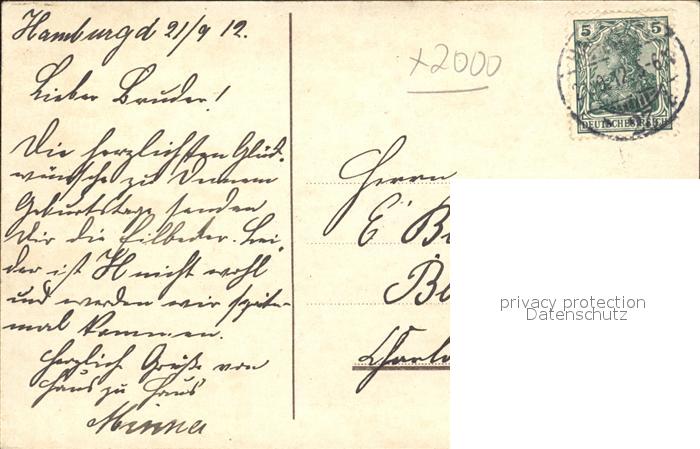 Hamburg d 21/9 12.
Lieber Bruder!
Die herzlichsten Glück-
wünsche zu Deinem
Geburtstage senden
Dir die Eilbeder. Lei-
der ist H nicht wohl
und werden wir später
mal kommen.
Herzlich Grüße von
Haus zu Haus
Minna
+2000
5 5
DEUTSCHES REICH
Herrn
E
privacy protection
Datenschutz